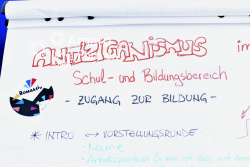 ANTIZIGANISMUS im
Schul- und Bildungsbereich
RomaniPhen
- ZUGANG ZUR BILDUNG -
* INTRO ↔ VORSTELLUNGSRUNDE
- Name